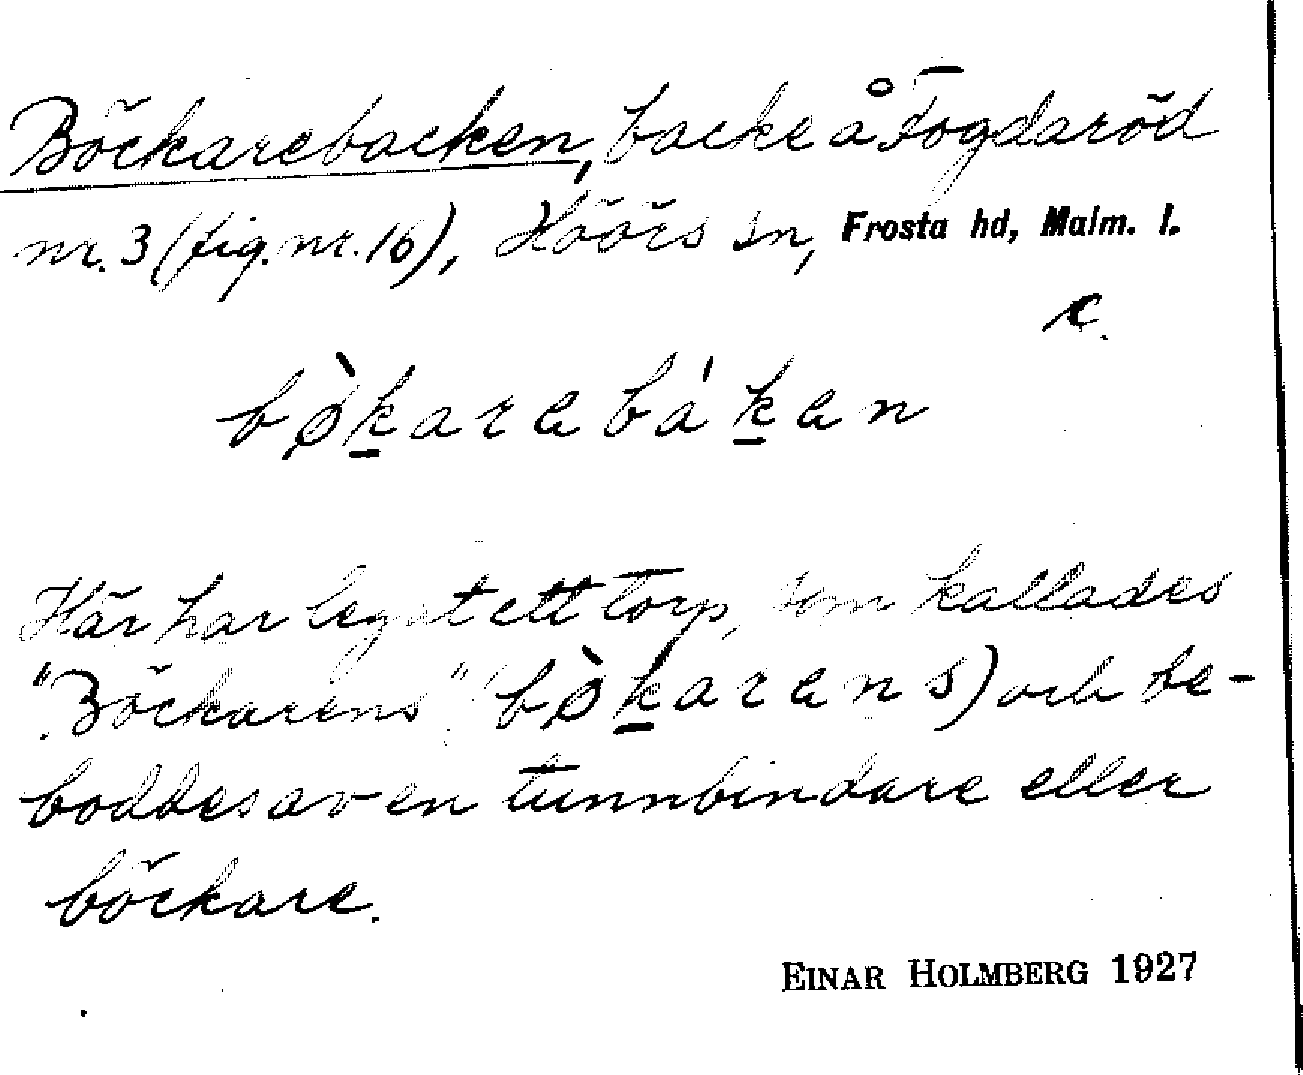 Böckarebacken, backe å Fogdaröd
nr. 3 (fig. nr. 16), Höörs sn, Frosta hd, Malm. l.
c.
bø̀karabákan
Här har legat ett torp, som kallades
"Böckarens" (bø̀karans) och be-
boddes av en tunnbindare eller
böckare.
EINAR HOLMBERG 1927